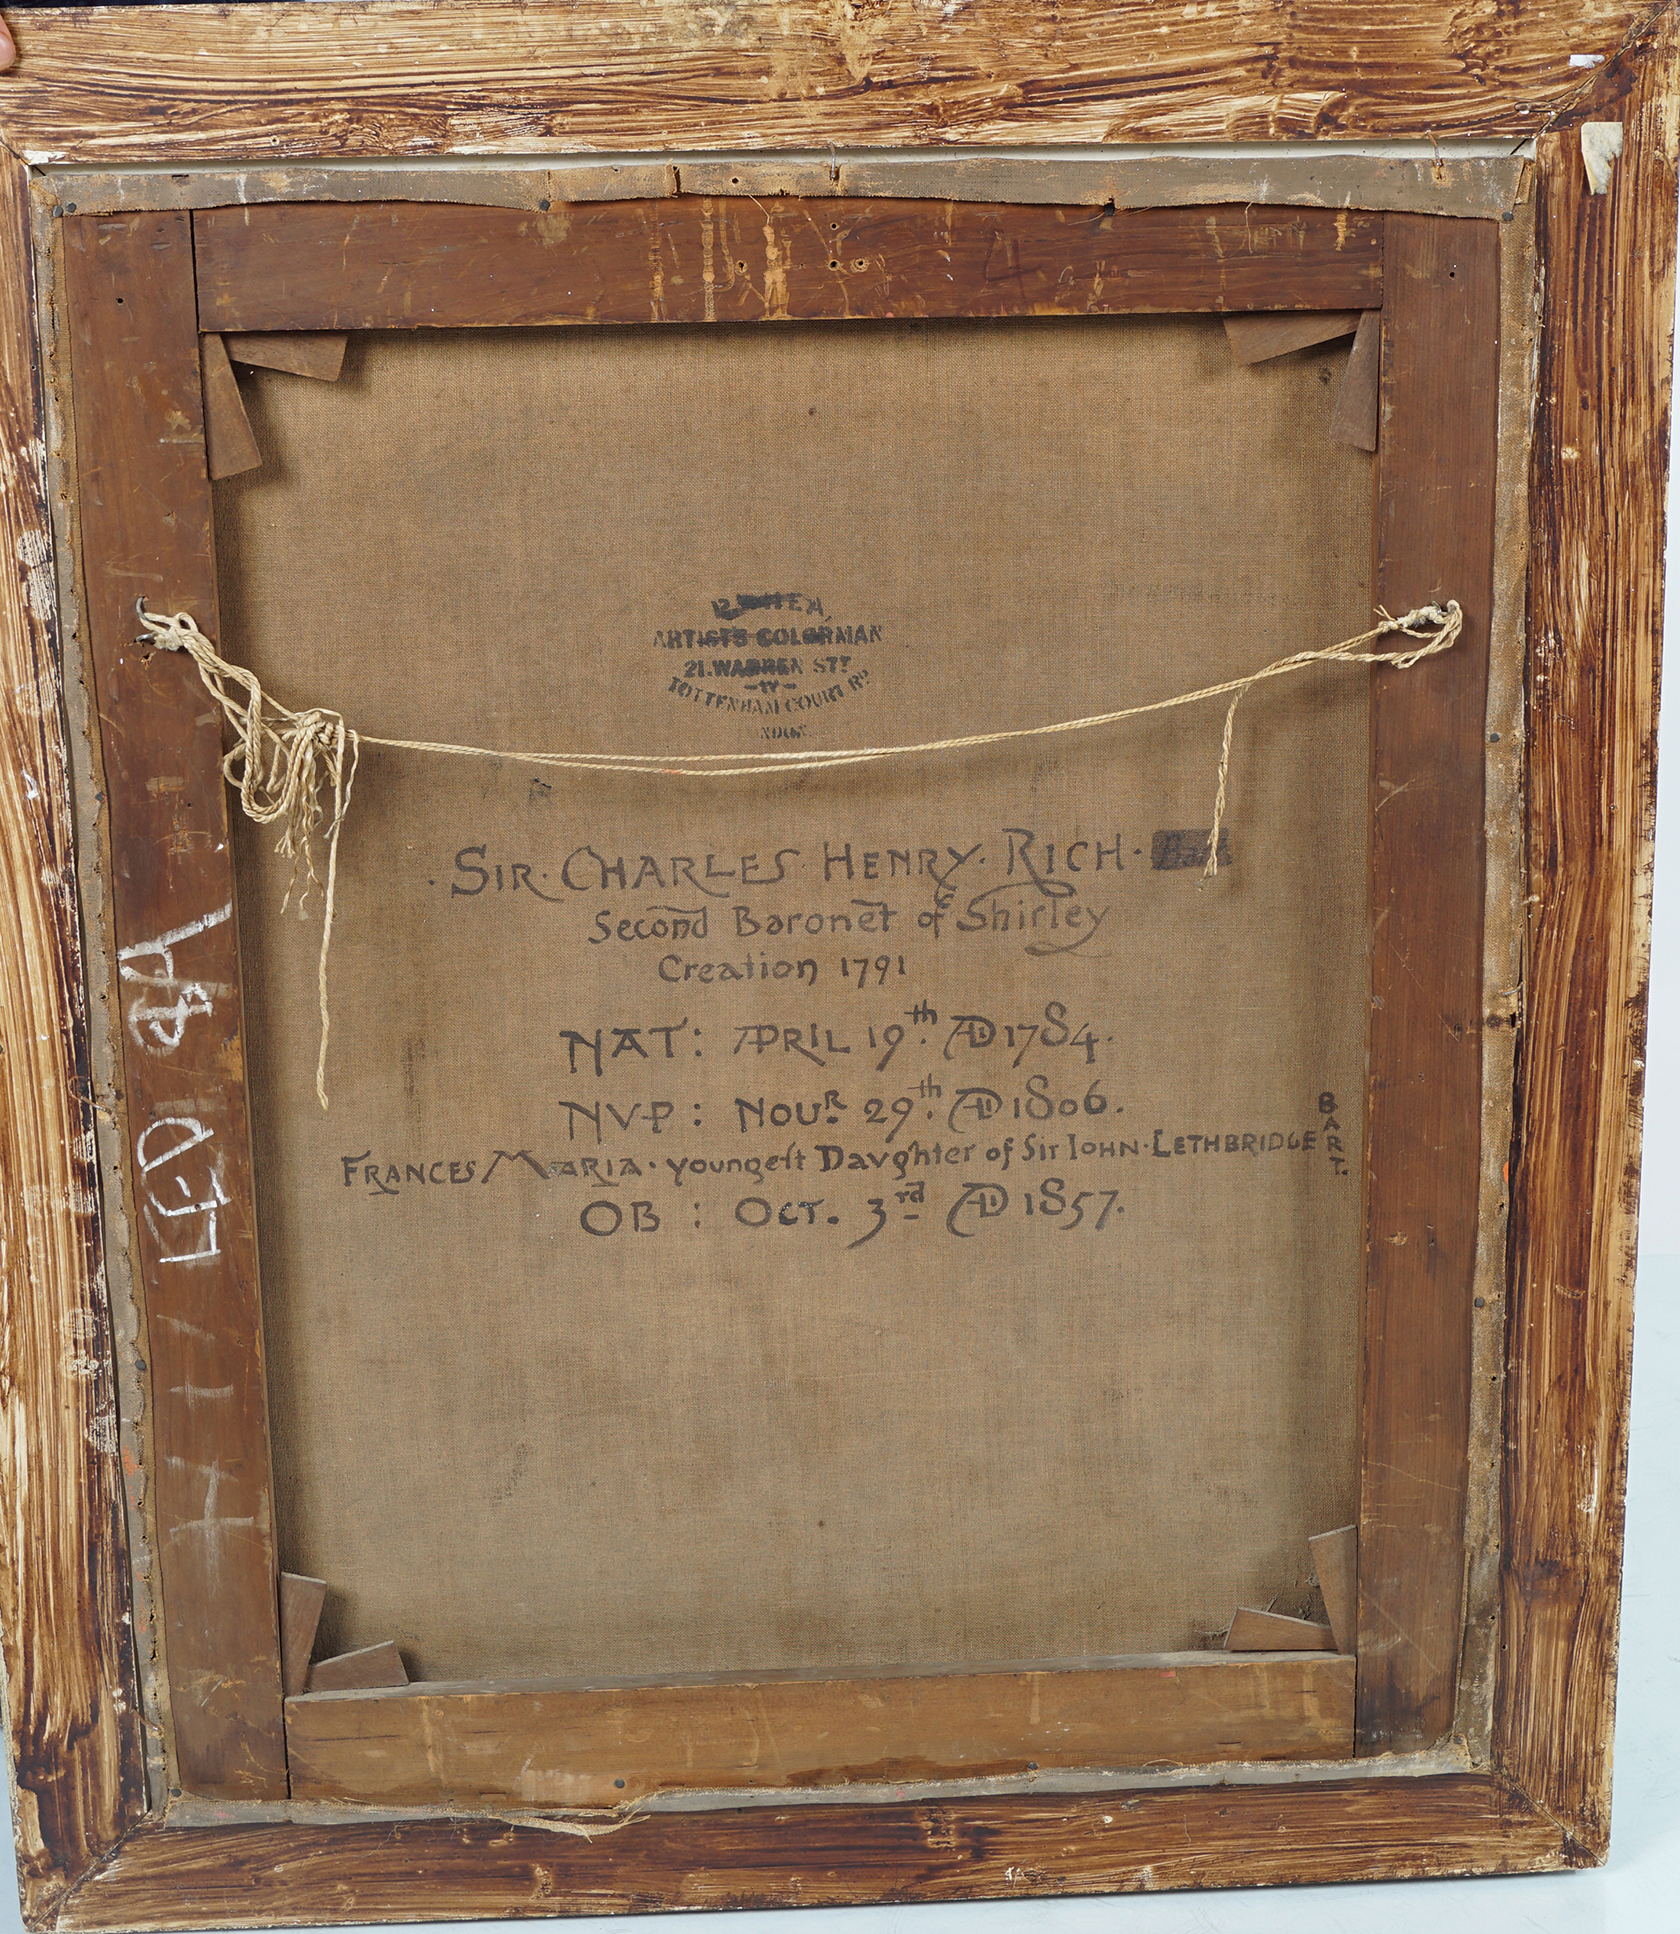 ARTISTS COLORMAN
21. WARREN STT
TOTTENHAM COURT RD
SIR. CHARLES HENRY. RICH.
Second Baronet of Shirley
Creation 1791
NAT: APRIL 19th. AD 1784.
NVP: NOUR. 29th. AD 1806.
FRANCES MARIA. youngeſt Davghter of Sir IOHN. LETHBRIDGE BART.
OB : OCT. 3rd AD 1857.
4